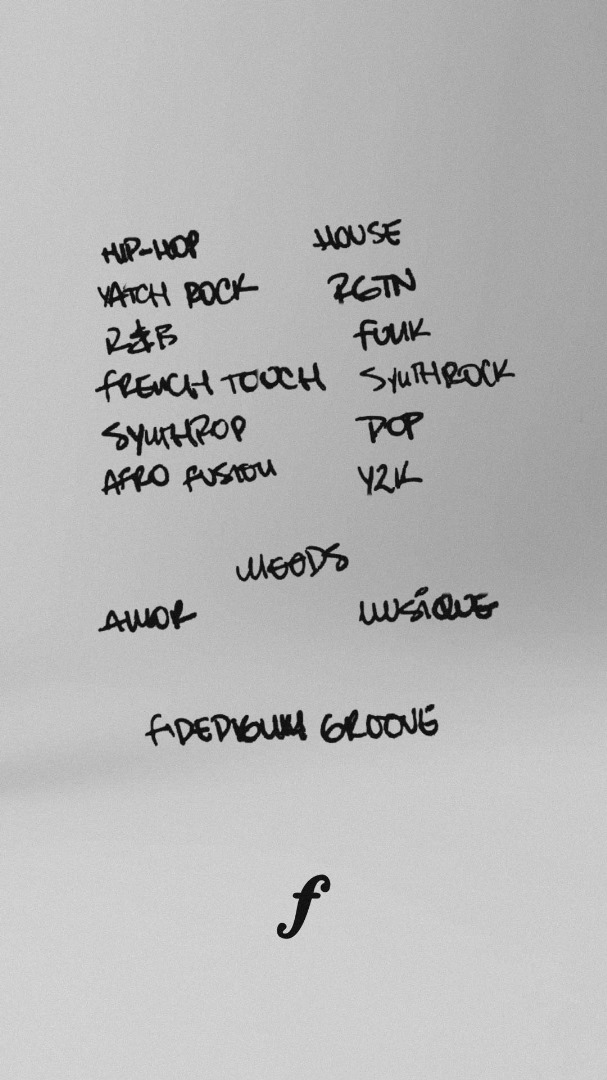 HIP-HOP HOUSE
YATCH ROCK RGTN
R&B FUNK
FRENCH TOUCH SYNTHROCK
SYNTHPOP POP
AFRO FUSION Y2K
MOODS
AMOR MUSIQUE
GROOVE
f